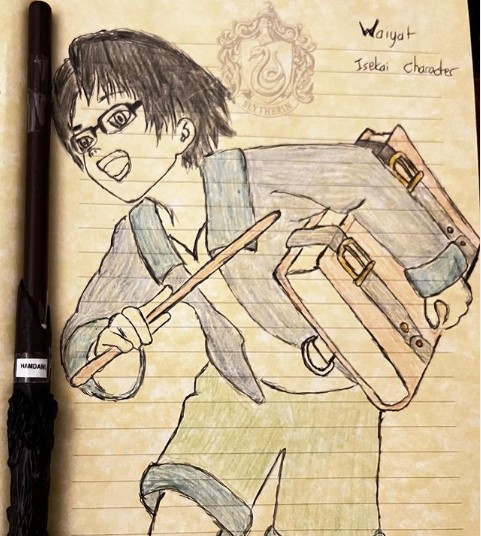 Waiyat
Isekai Character
SLYTHERIN
HAMDAN